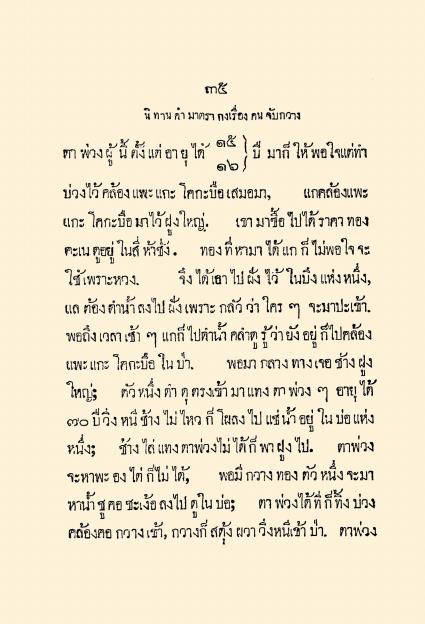 ๓๕
นิทาน คำ มาตรา กงเรื่อง คน จับกวาง
ตา พ่วง ผู้ นี้ ตั้งแต่ อา ยุ ได้ ๑๕ ๑๖ } ปี มาก็ ให้ พอใจแต่ทำ
บ่วงไว้ คล้อง แพะ แกะ โคกะบือ เสมอมา, แกคล้องแพะ
แกะ โคกะบือ มาไว้ ฝูง ใหญ่. เขา มาซื้อ ไปได้ ราคา ทอง
คะเน ดูอยู่ ในสี่ หัวชั่ง. ทอง ที่ หามา ได้ แก ก็ ไม่พอใจ จะ
ใช้ เพราะหวง. จึง ได้เอา ไป ฝัง ไว้ ในบึง แห่ง หนึ่ง,
แล ต้อง ดำน้ำ ลงไป ฝัง เพราะ กลัว ว่า ใคร ๆ จะมาปะเข้า.
พอถึง เวลา เช้า ๆ แกก็ ไปดำน้ำ คลำดู รู้ว่า ยัง อยู่ ก็ไปคล้อง
แพะ แกะ โคกะบือ ใน ป่า. พอมา กลาง ทาง เจอ ช้าง ฝูง
ใหญ่; ตัว หนึ่ง ดำ ดุ ตรงเข้า มา แทง ตา พ่วง ๆ อายุ ได้
๗๐ ปี วิ่ง หนี ช้าง ไม่ ไหว ก็ โผลง ไป แช่ น้ำ อยู่ ใน บ่อ แห่ง
หนึ่ง; ช้าง ไล่ แทง ตาพ่วง ไม่ ได้ ก็ พา ฝูง ไป. ตาพ่วง
จะหาพะ อง ไต่ ก็ไม่ ได้, พอมี กวาง ทอง ตัว หนึ่ง จะมา
หาน้ำ ชู คอ ชะเง้อ ลงไป ดูใน บ่อ; ตา พ่วงได้ที ก็ ทิ้ง บ่วง
คล้องคอ กวาง เข้า, กวางก็ สดุ้ง ผวา วิ่งหนีเข้า ป่า. ตาพ่วง